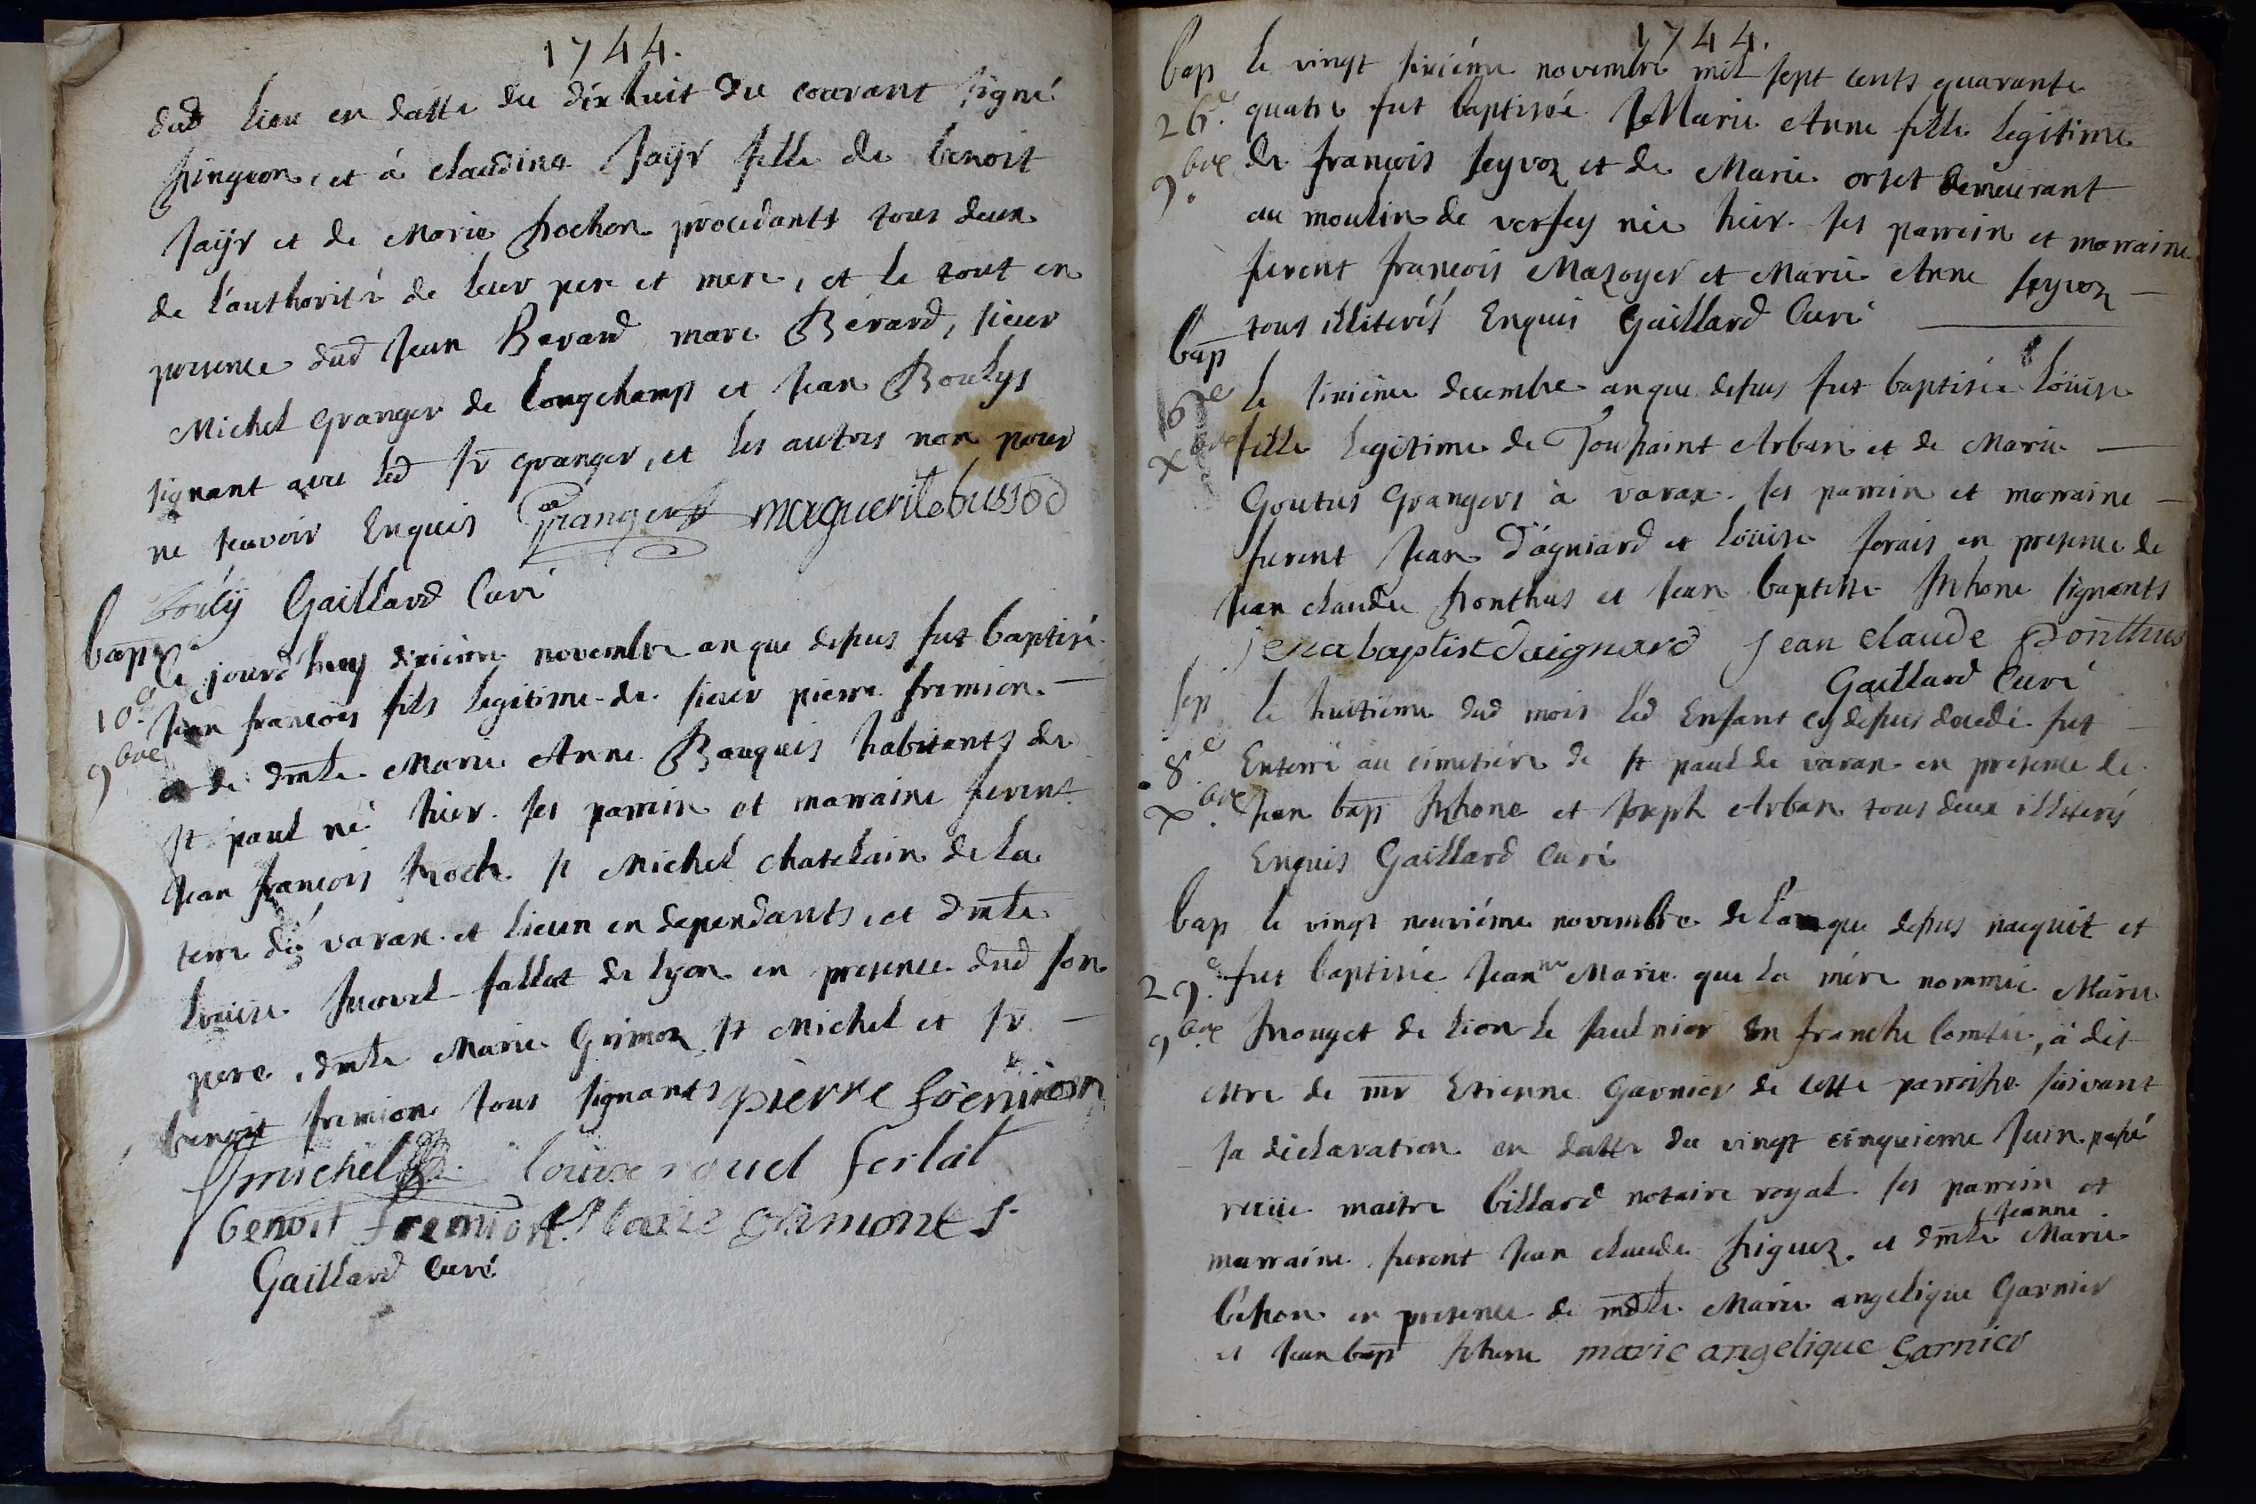 1744.
dud lieu en datte du dix huit du courant signé
pingeon, et à claudine Jayr fille de benoit
Jayr et de Marie Prochon procedants tous deux
de l'authorité de leur pere et mere, et le tout en
presence dud Jean Berard marc Bérard, sieur
Michel Granger de Longchamp et Jean Boulys
signant avec led sr Granger, et les autres non pour
ne scavoir Enquis Granger marguerite busso d
bouly Gaillard Curé
bap
10e
9bre
Ce jourd'huy dixieme novembre an que dessus fut baptisé
Jean francois fils legitime de sieur pierre fremion
et de dmlle Marie Anne Bouquis habitants de
st paul né hier. ses parrein et marraine furent
Jean francois Roch st Michel chatelain de la
terre de varax et lieux en dependants, et dmlle
louise Rouel fallat de lyon en presence dud son
pere, dmlle Marie Grimon st Michel et sr
benoit fremion tous signants pierre fremion
stmichel louise rouel ferlat
benoit fremion Marie Grimont s
Gaillard Curé
1744.
bap
26e
9bre
le vingt sixiéme novembre mil sept cents quarante
quatre fut baptisée Marie Anne fille legitime
de francois seyvoz et de Marie orset demeurant
au moulin de versey née hier. ses parrein et marraine
furent francois Mazoyer et Marie Anne seyvoz
tous illiterés Enquis Gaillard Curé
bap
6e
xbre
le sixiéme decembre an que dessus fut baptisée Loüise
fille legitime de Toussaint Arban et de Marie
Goutus Grangers à varax. ses parrein et marraine
furent Jean D'agniard et Loüise forais en presence de
Jean claude Ponthus et Jean baptiste Rhone signants
jena baptist daignard Jean claude Ponthus
Gaillard Curé
sep
8e
xbre
le huitieme dud mois led Enfant cy dessus decedé fut
Enterré au cimetiére de st paul de varax en presence de
Jean bap Rhone et Joseph Arban tous deux illiterés
Enquis Gaillard Curé
bap
29e
9bre
le vingt neuviéme novembre de l'an que dessus nacquit et
fut baptisée Jeanne Marie que la mére nommée Marie
Mouget de Lion le saulnier en franche Comtée, à dit
estre de mr Etienne Garnier de cette parroisse suivant
sa declaration en datte du vingt cinquieme Juin passé
recüe maitre billard notaire royal. ses parrein et
marraine furent Jean claude Piguez. et dmlle Jeanne Marie
besson en presence de mdlle Marie angelique Garnier
et Jean bap Rhone marie angelique Garnier